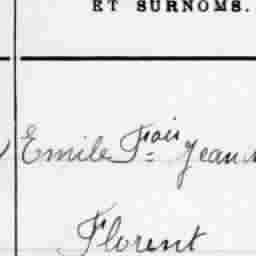 ET SURNOMS.
Emile Fois Jean
Florent